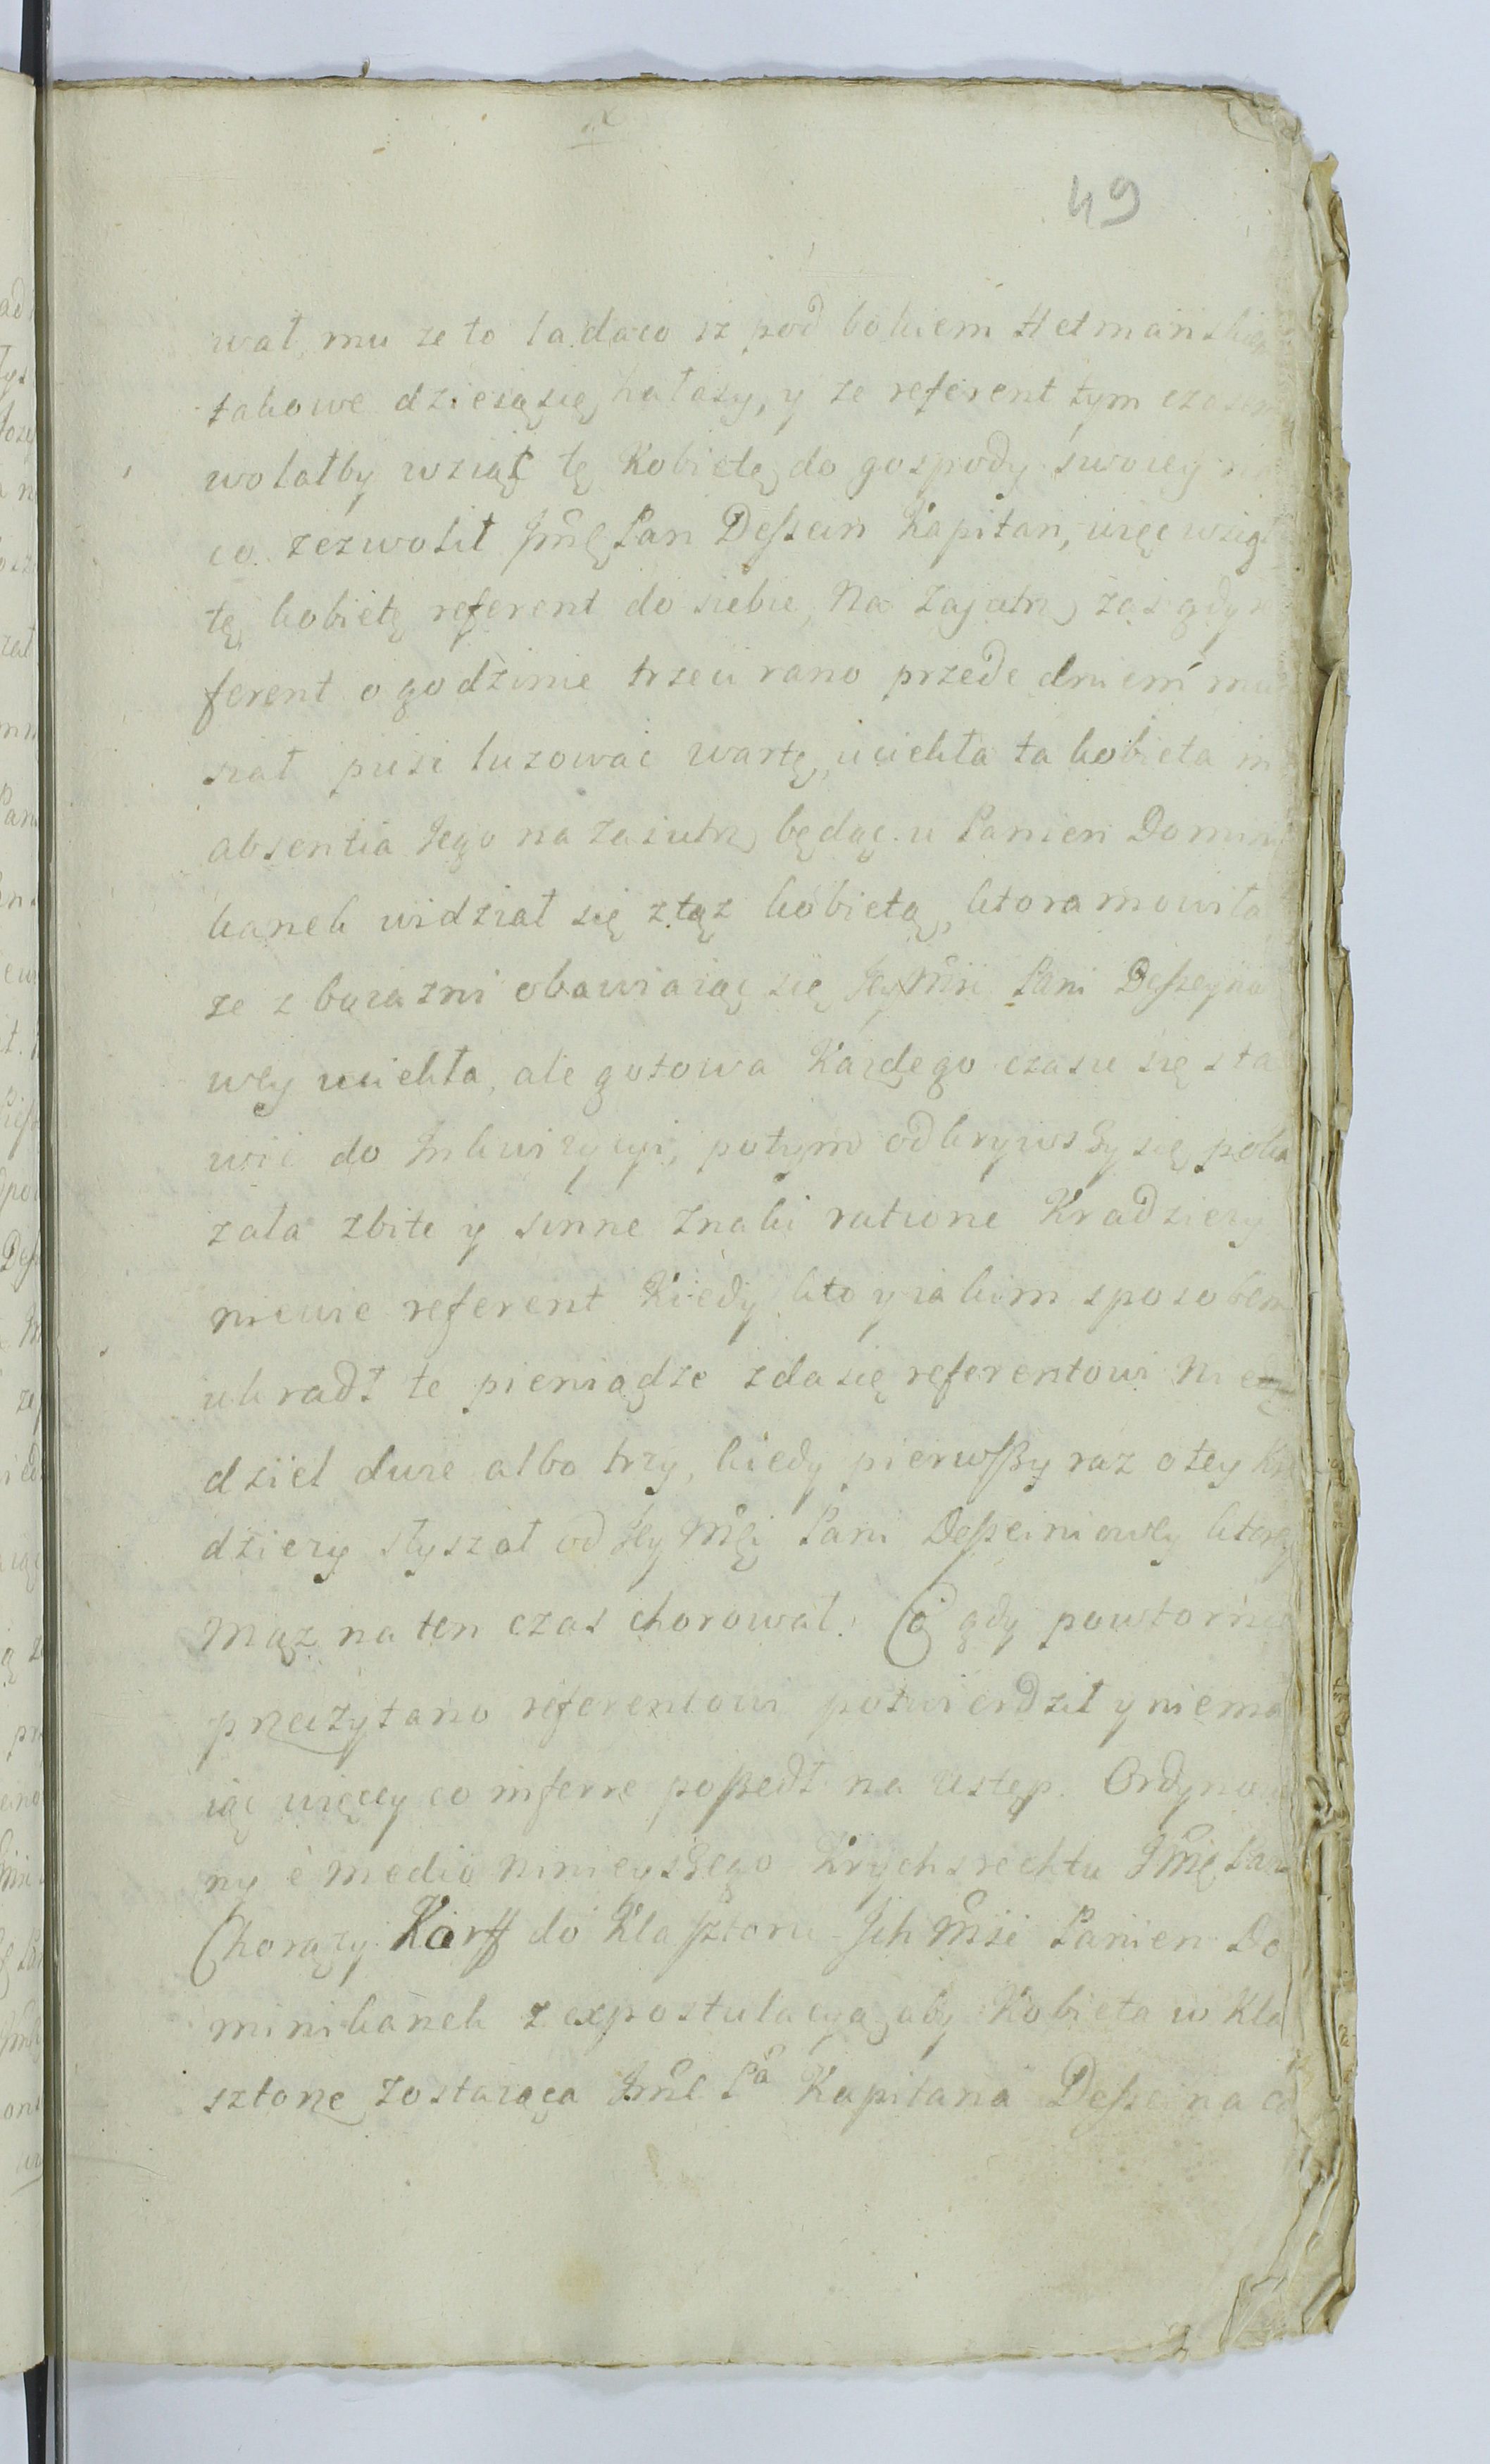 49
wał mu ze to ladaco iz pod bokiem Hetmanskim
takowe dzieią się hałasy, y ze referent tym czasem
wolałby wziąć tę Kobietę do gospody swoiey na
co zezwolił Jmć Pan Dessein Kapitan, więc wziął
tę kobietę referent do siebie, Na Zajutrz zas gdy re
ferent o godzinie trzeci rano przede dniem mu
siał puisc luzowac wartę, uciekła ta kobieta in
absentia Jego na Zaiutrz będąc u Panien Domini
kanek widział się z tąz kobietą, ktora mowiła
ze z boiazni obawiaiąc się Jeymci Pani Desseyno
wey uciekła, ale gotowa Kazdego czasu się sta
wic do Inkwizycyi, potym odkrywszy się poka
zała zbite y sinne Znaki ratione Kradziezy
niewie referent Kiedy kto y iakim sposobem
ukradł te pieniądze zda się referentowi Nie
dziel dwie albo trzy, kiedy pierwszy raz o tey Kra
dziezy słyszał od Jey Mci Pani Desseiniowey ktorey
Mąz na ten czas chorował. Co gdy powtornie
przeczytano referentowi potwierdził y niema
iąc więcey co inferre poszedł na Ustęp. Ordynowa
ny e medio ninieyszego Krychsrechtu Jmć Pan
Chorązy Korff do Klasztoru Ich Mci Panien Do
minikanek z expostulacyą, aby Kobieta w Kla
sztorze Zostaiąca Jmć Pa Kapitana Desseina co